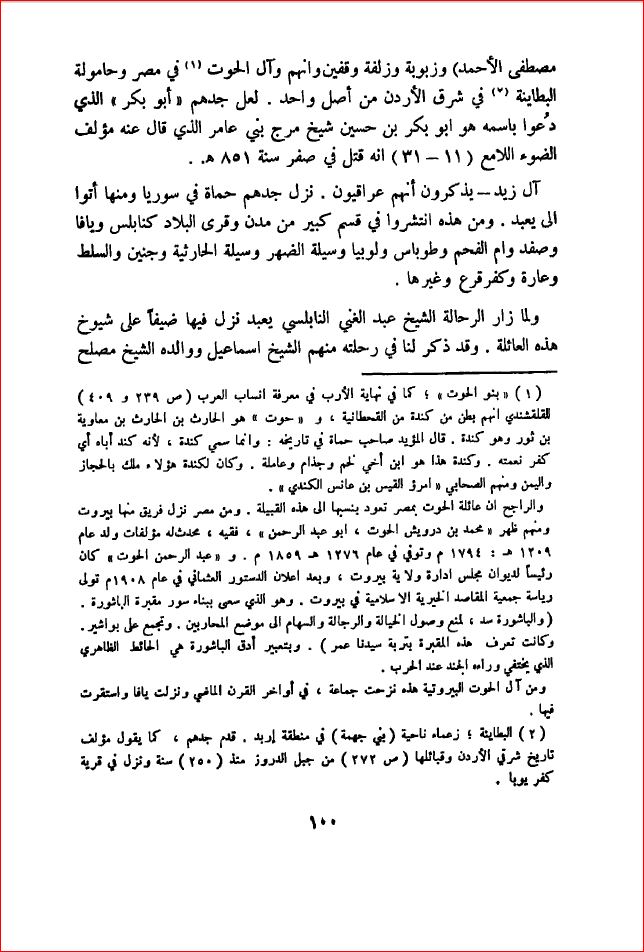 مصطفى الأحمد) وزبوبة وزلفة وقفين وانهم وآل الحوت (١) في مصر وحامولة
البطاينة (٢) في شرق الأردن من أصل واحد . لعل جدهم «أبو بكر» الذي
دُعوا باسمه هو ابو بكر بن حسين شيخ مرج بني عامر الذي قال عنه مؤلف
الضوء اللامع ( ١١ – ٣١ ) انه قتل في صفر سنة ٨٥١ هـ .
آل زيد – يذكرون أنهم عراقيون . نزل جدهم حماة في سوريا ومنها أتوا
الى يعبد . ومن هذه انتشروا في قسم كبير من مدن وقرى البلاد كنابلس ويافا
وصفد وام الفحم وطوباس ولوبيا وسيلة الضهر وسيلة الحارثية وجنين والسلط
وعارة وكفرقرع وغيرها .
ولما زار الرحالة الشيخ عبد الغني النابلسي يعبد نزل فيها ضيفاً على شيوخ
هذه العائلة . وقد ذكر لنا في رحلته منهم الشيخ اسماعيل ووالده الشيخ مصلح
( ١ ) « بنو الحوت » ؛ كما في نهاية الأرب في معرفة انساب العرب ( ص ٢٣٩ و ٤٠٩ )
للقلقشندي انهم بطن من كندة من القحطانية ، و « حوت » هو الحارث بن الحارث بن معاوية
بن ثور وهو كندة . قال المؤيد صاحب حماة في تاريخه : وانما سمي كندة ، لأنه كند أباه أي
كفر نعمته . وكندة هذا هو ابن أخي لخم وجذام وعاملة . وكان لكندة هؤلاء ملك بالحجاز
واليمن ومنهم الصحابي « امرؤ القيس بن عانس الكندي » .
والراجح ان عائلة الحوت بمصر تعود بنسبها الى هذه القبيلة . ومن مصر نزل فريق منها بيروت
ومنهم ظهر « محمد بن درويش الحوت ، ابو عبد الرحمن » ، فقيه ، محدث له مؤلفات ولد عام
١٢٠٩ هـ : ١٧٩٤ م وتوفي في عام ١٢٧٦ هـ ١٨٥٩ م . و « عبد الرحمن الحوت » كان
رئيساً لديوان مجلس ادارة ولاية بيروت ، وبعد اعلان الدستور العثماني في عام ١٩٠٨م تولى
رياسة جمعية المقاصد الخيرية الاسلامية في بيروت . وهو الذي سعى ببناء سور مقبرة الباشورة .
( والباشورة سد ، لمنع وصول الخيالة والرجالة والسهام الى موضع المحاربين . وتجمع على بواشير .
وكانت تعرف هذه المقبرة بتربة سيدنا عمر ) . وبتعبير أدق الباشورة هي الحائط الظاهري
الذي يختفي وراءه الجند عند الحرب .
ومن آل الحوت البيروتية هذه نزحت جماعة ، في أواخر القرن الماضي ونزلت يافا واستقرت
فيها .
( ٢ ) البطاينة ؛ زعماء ناحية ( بني جهمة ) في منطقة إربد . قدم جدهم ، كما يقول مؤلف
تاريخ شرقي الأردن وقبائلها ( ص ٢٧٢ ) من جبل الدروز منذ ( ٢٥٠ ) سنة ونزل في قرية
كفر يوبا .
١٠٠